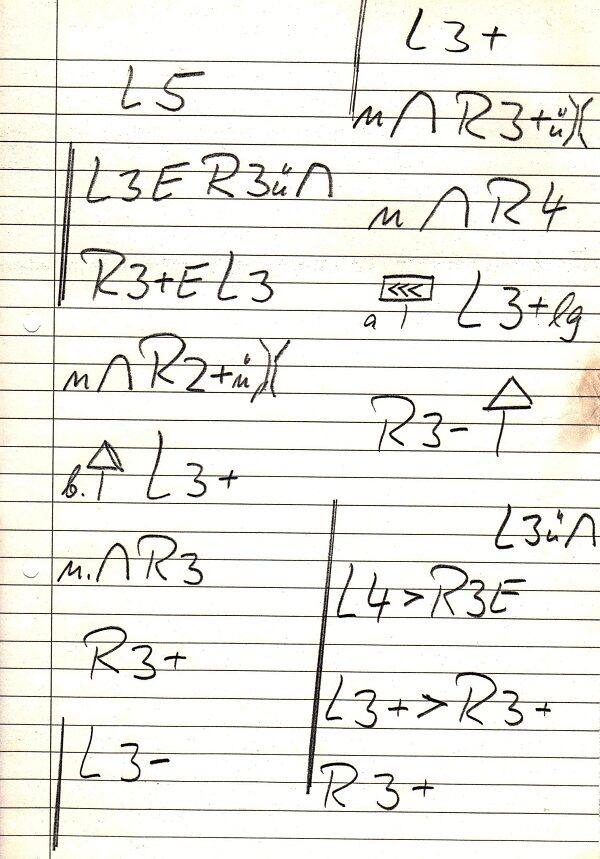 L5
L3E R3ü∩
R3+E L3
n∩R2+ü)(
b. L3+
n.∩R3
R3+
L3-
L3+
n∩R3+ü)(
n∩R4
<<<
a L3+lg
R3-
L3ü∩
L4>R3E
L3+>R3+
R3+